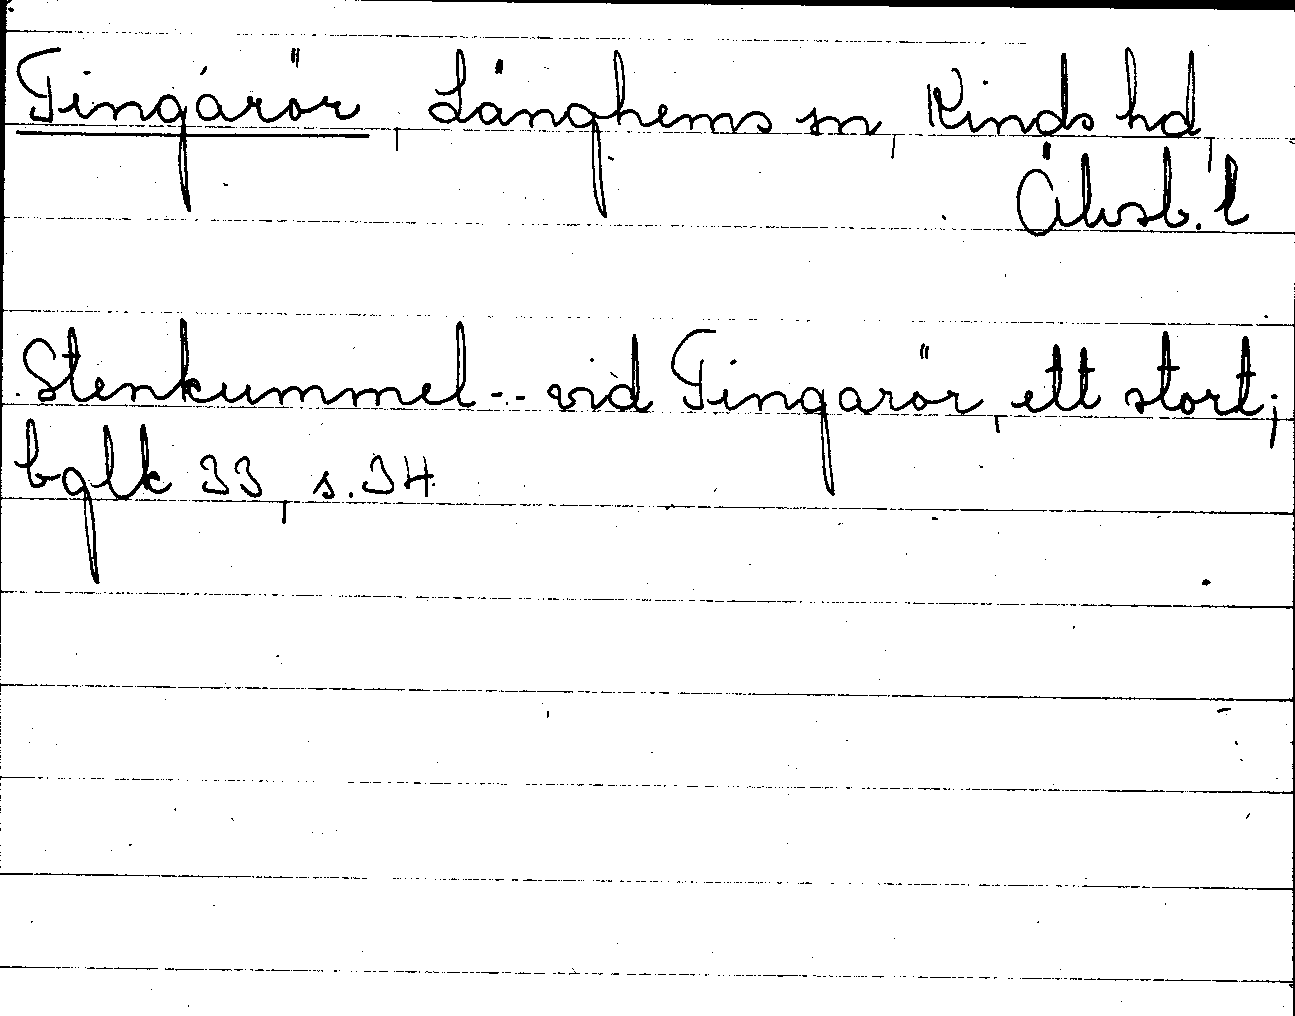 Tingarör, Länghems sn, Kinds hd,
Älvsb. l
Stenkummel -- vid Tingarör, ett stort;
bglk 33, s. 34